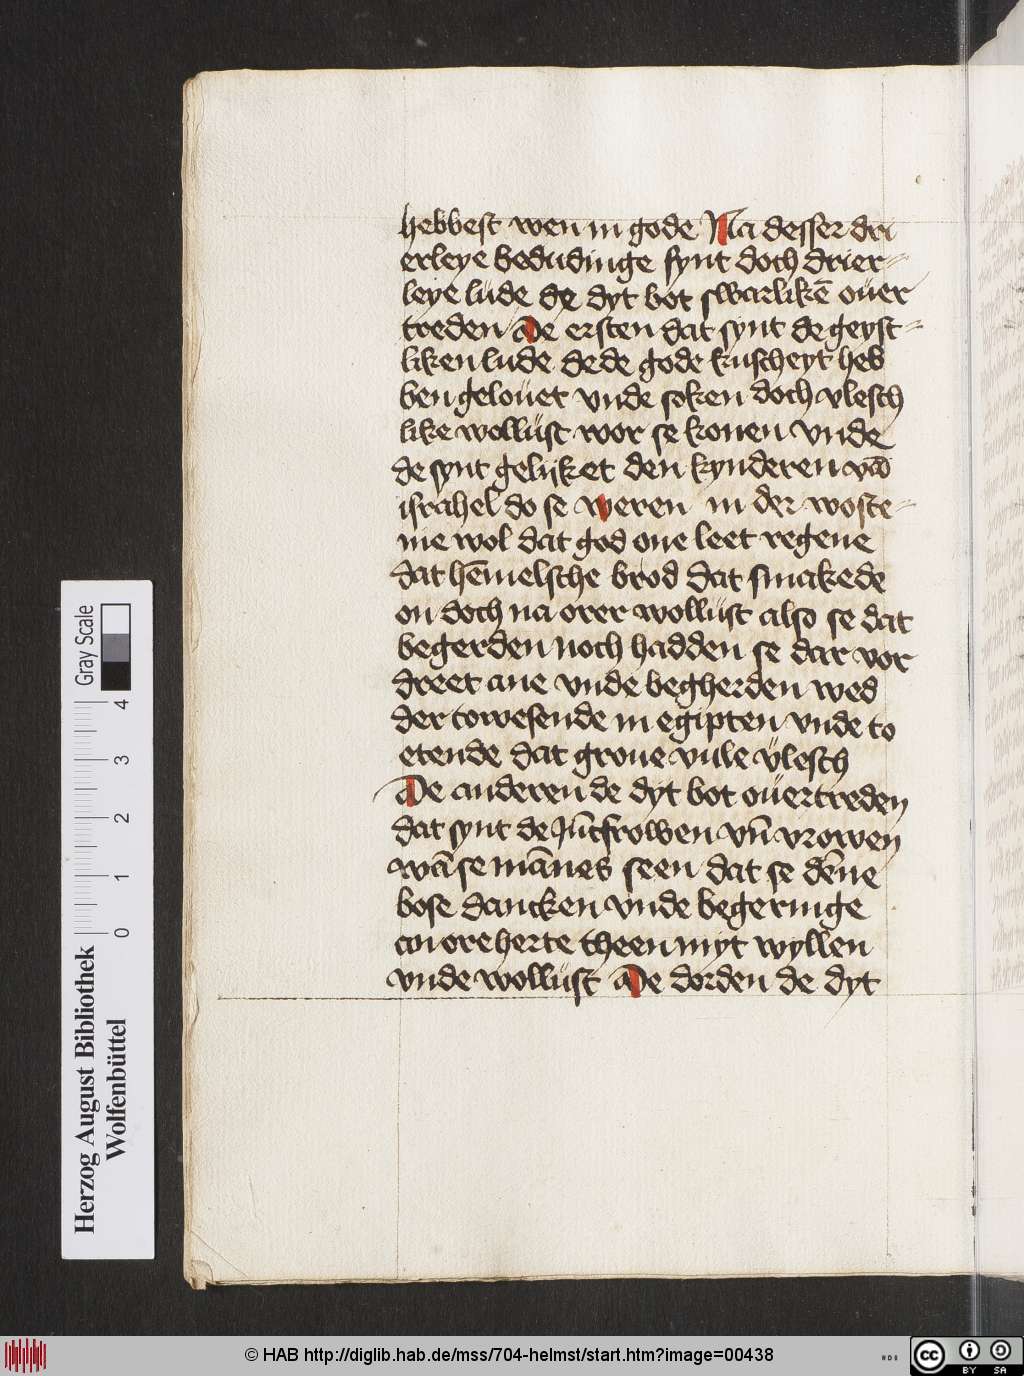 hebbest wen in gode Na desser dri
erleye bedudinge synt doch drier=
leye lüde de dyt bot swarlikē ouer
treden De ersten dat synt de geyst=
liken lude dede gode kuscheyt heb
ben gelouet vnde soken doch vlesch
like wollüst wor se konen vnde
de synt gelijket den kynderen vā
israhel do se weren in der woste=
nie wol dat god one leet regene
dat hēmelsche brod dat smakede
on doch na orer wollüst also se dat
begerden noch hadden se dar vor
dreet ane vnde begherden wed
der towesende in egipten vnde to
etende dat groue vule vlesch
De anderen de dyt bot ouertreden
dat synt de Jūcfrowen vn̄ vrowen
wā se mānes seen dat se dēne
bose dancken vnde begeringe
an ore herte theen myt wyllen
vnde wollüst De dorden de dyt
Herzog August Bibliothek
Wolfenbüttel
Gray Scale
0 1 2 3 4
© HAB http://diglib.hab.de/mss/704-helmst/start.htm?image=00438
cc BY SA